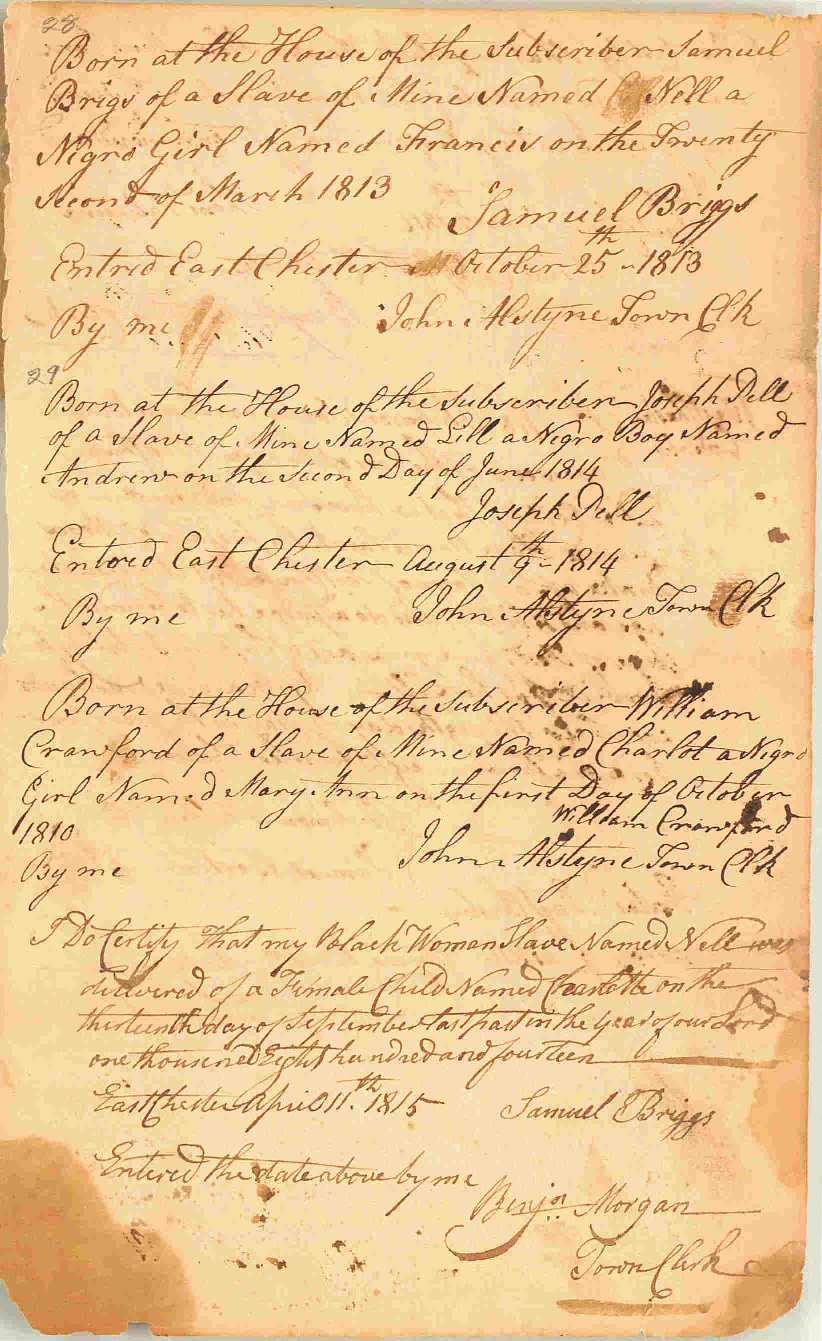 28
Born at the House of the Subscriber Samuel
Brigs of a Slave of Mine Named Nell a
Nigro Girl Named Francis on the Twenty
Second of March 1813
Samuel Briggs
Entred East Chester October 25th 1813
By me John Alstyne Town Clk
29
Born at the House of the Subscriber Joseph Dell
of a Slave of Mine Named Lill a Nigro Boy Named
Andrew on the Second Day of June 1814
Joseph Dell
Entred East Chester August 9th 1814
By me John Alstyne Town Clk
Born at the House of the Subscriber William
Crawford of a Slave of Mine Named Charlot a Nigro
Girl Named Mary Ann on the first Day of October
1810 William Crawford
By me John Alstyne Town Clk
I Do Certify That my Black Woman Slave Named Nell was
delivered of a Female Child Named Charlotte on the
thirteenth day of September last past in the year of our Lord
one thousand Eight hundred and fourteen
EastChester April 11th. 1815 Samuel Briggs
Entered the date above by me
Benjn Morgan
Town Clerk